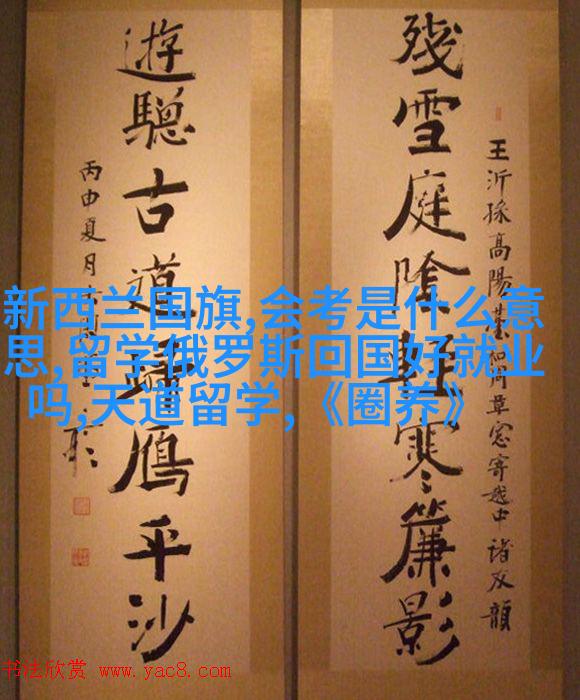 王沂孫高陽臺和周草窓寄越中諸友韻
殘雪庭陰輕寒簾影
遊驄古道歸鴈平沙
丙申夏月
新西兰国旗,会考是什么意
思,留学俄罗斯回国好就业
吗,天道留学,《圈养》
书法欣赏 www.yac8.com